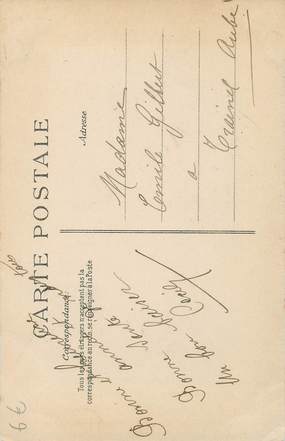 CARTE POSTALE
Correspondance:
Tous les pays étrangers n'acceptent pas la
correspondance au recto, se renseigner à la Poste
Adresse
Madame
Emile Gilbert
a
Trainel Aube
Bonne
année
Bonne
Santé
un bon
6€